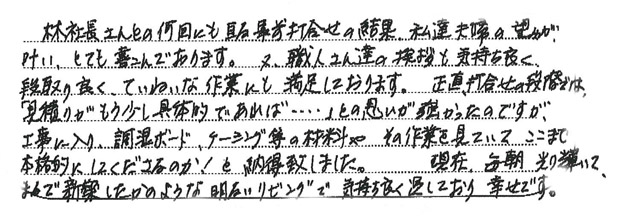 林社長さんとの何回にも見る事前打合せの結果、私達夫婦の望みが
叶い、とても喜こんであります。又、職人さん達の挨拶も気持ち良く、
段取り良く、ていねいな作業にも満足しております。正直打合せの段階では、
「見積りがもう少し具体的であれば‥‥」との思いが強かったのですが、
工事に入り、調湿ボード、ケーシング等の材料や その作業を見ていて ここまで
本格的にしてくださるのか！と納得致しました。 現在、毎朝 光り輝いて、
まるで新築したかのような明るいリビングで 気持ち良く過しており 幸せです。